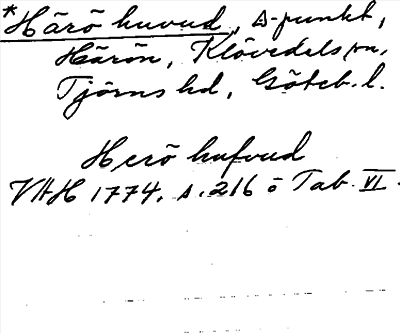 *Härö huvud, s-punkt,
Härön, Klövedals sn,
Tjörns hd, Göteb. l.
Herö hufvud
VAH 1774, s. 216 o Tab. VI.